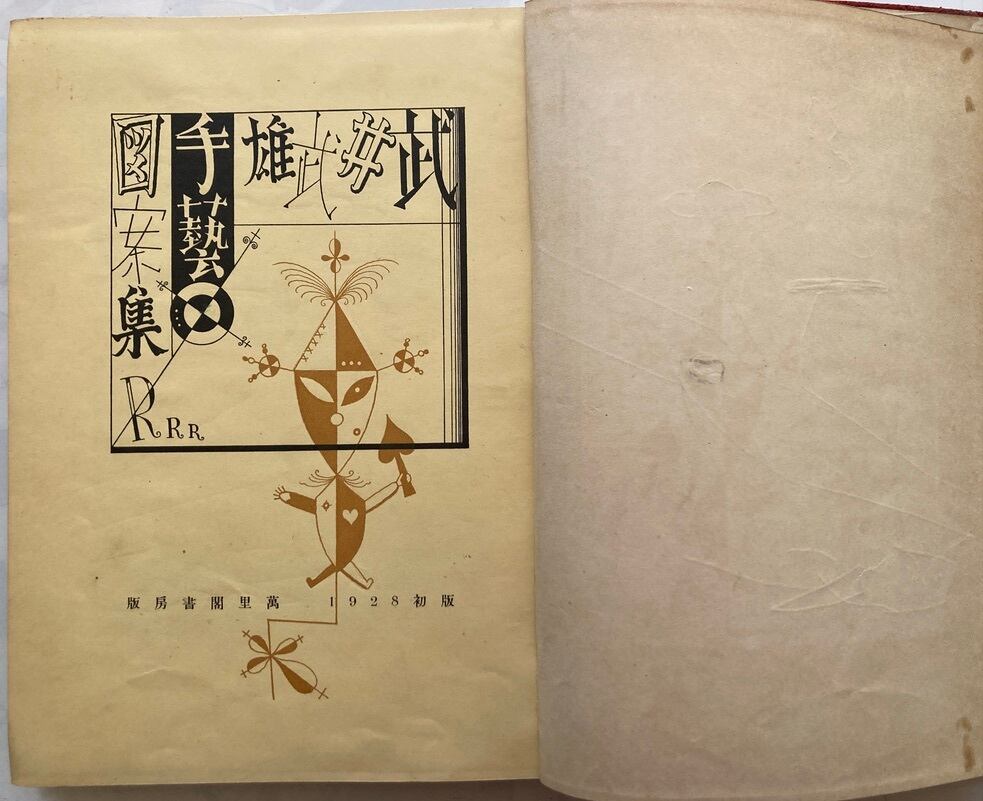 武井武雄
手藝
図案集
R R R
1928初版
萬里閣書房版